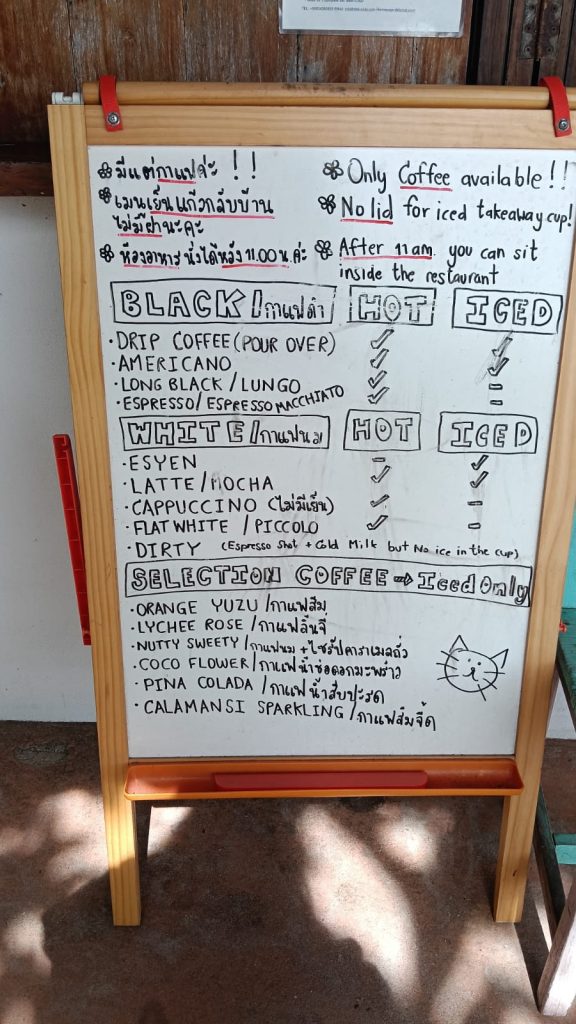 มีแต่กาแฟค่ะ !!
เมนูเย็นแก้วกลับบ้าน
ไม่มีฝานะคะ
ห้องอาหาร นั่งได้หลัง 11.00 น. ค่ะ
Only Coffee available!!
No lid for iced takeaway cup!
After 11 am. you can sit
inside the restaurant
BLACK/กาแฟดำ HOT ICED
· DRIP COFFEE (POUR OVER) ✓ ✓
· AMERICANO ✓ ✓
· LONG BLACK / LUNGO ✓ -
· ESPRESSO / ESPRESSO MACCHIATO ✓ -
WHITE/กาแฟนม HOT ICED
· ESYEN - ✓
· LATTE / MOCHA ✓ ✓
· CAPPUCCINO (ไม่มีเย็น) ✓ -
· FLAT WHITE / PICCOLO ✓ -
· DIRTY (Espresso Shot + Cold Milk but No ice in the cup)
SELECTION COFFEE → Iced Only
· ORANGE YUZU / กาแฟส้ม
· LYCHEE ROSE / กาแฟลิ้นจี่
· NUTTY SWEETY / กาแฟนม + ไซรัปคาราเมลถั่ว
· COCO FLOWER / กาแฟน้ำช่อดอกมะพร้าว
· PINA COLADA / กาแฟน้ำสับปะรด
· CALAMANSI SPARKLING / กาแฟส้มจี๊ด